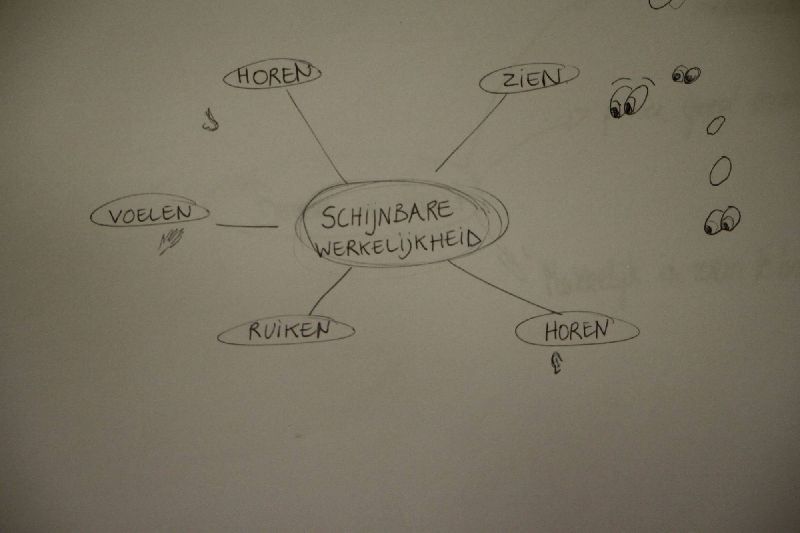 HOREN
ZIEN
VOELEN
SCHIJNBARE
WERKELIJKHEID
RUIKEN
HOREN